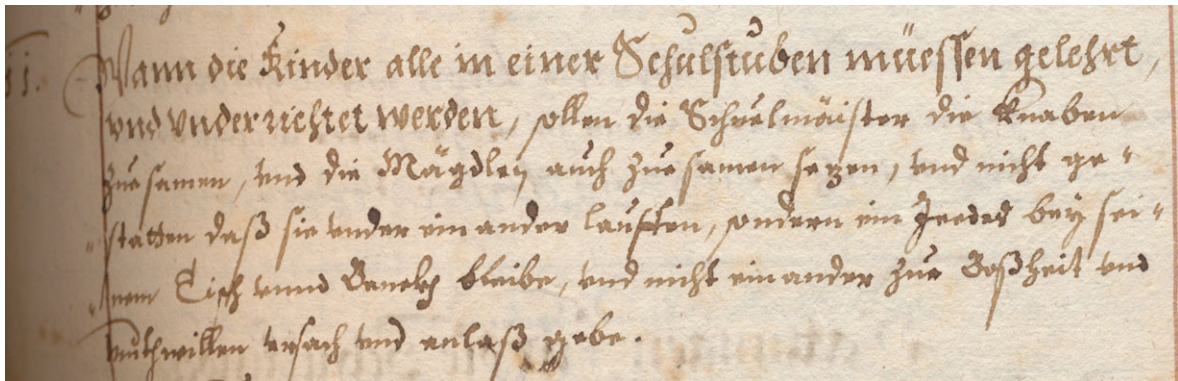 Wann die Kinder alle in einer Schulstuben müessen gelehrt,
vnd vnderrichtet werden, sollen die Schuelmäister die Knaben
zuesamen, vnd die Mägdlen auch zuesamen sezen, vnd nicht ge-
statten daß sie vnder einander lauffen, sondern ein Jeedes bey sei-
nem Tisch vnnd Banckh bleibe, vnd nicht einander zue Boßheit vnd
muthwillen vrsach vnd anlaß gebe.